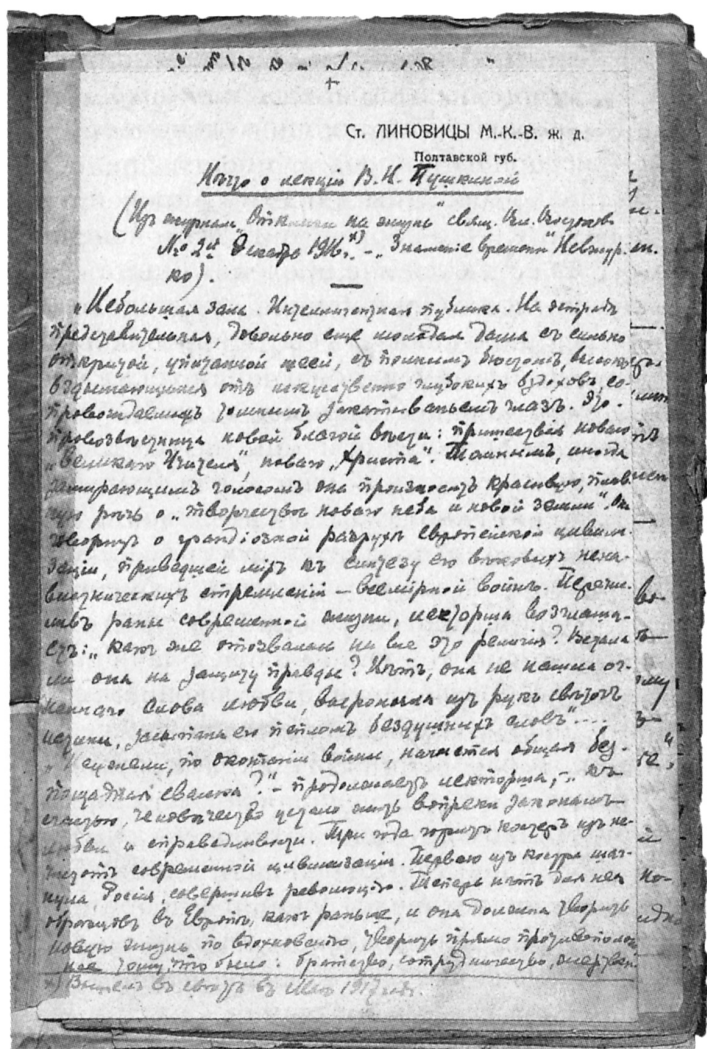 Ст. ЛИНОВИЦЫ М.-К.-В. ж. д.
Полтавской губ.
Нѣчто о лекціи В. И. Пушкиной
(Изъ журнала „Отклики на жизнь" свящ. Вл. Востоков
№ 2й Декабрь 1916г. *) – „Знаменіе времени"
ко).
„Небольшая зала. Интеллигентная публика. На эстрадѣ
представительная, довольно еще молодая дама съ сильно
открытой, упитанной шеей, съ пышнымъ бюстомъ, высоко
вздымающимся отъ искусственно глубокихъ вздоховъ, со-
провождаемыхъ томнымъ закатываньемъ глазъ. Это –
провозвѣстница новой благой вѣсти: пришествія новаго
„Великаго Учителя", новаго „Христа". Томнымъ, иногда
замирающимъ голосомъ она произноситъ красивую, плав-
ную рѣчь о „творчествѣ новаго неба и новой земли". Она
говоритъ о грандіозной разрухѣ европейской цивили-
заціи, приведшей міръ къ синтезу его вѣковыхъ нена-
вистническихъ стремленій – всемірной войнѣ. Перечи-
сливъ раны современной жизни, лекторша возглаша-
етъ: „какъ же отозвалась на все это религія? Встала
ли она на защиту правды? Нѣтъ, она не нашла ог-
неннаго слова любви, выронила изъ рукъ свѣточъ
истины, засыпала его пепломъ бездушныхъ словъ"....
„Неужели, по окончаніи войны, начнется общая без-
пощадная свалка?" – продолжаетъ лекторша, – „къ
счастью, человѣчество устало жить вопреки законамъ
любви и справедливости. Три года горитъ костеръ изъ не-
чистотъ современной цивилизаціи. Первою изъ костра шаг-
нула Россія, совершивъ революцію. Теперь нѣтъ для нея
образцовъ въ Европѣ, какъ раньше, и она должна творить
новую жизнь по вдохновенію, творить прямо противополож-
ное тому, что было: братство, сотрудничество,
*) Вышелъ въ свѣтъ въ Маѣ 1917 года.